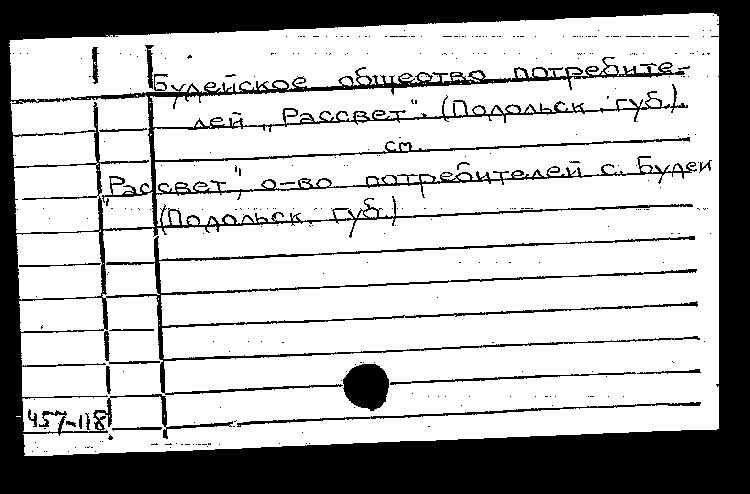 Будейское общество потребите-
лей „Рассвет". (Подольск. губ.).
см.
"Рассвет", о-во потребителей с. Будеи
(Подольск. губ.)
457-118